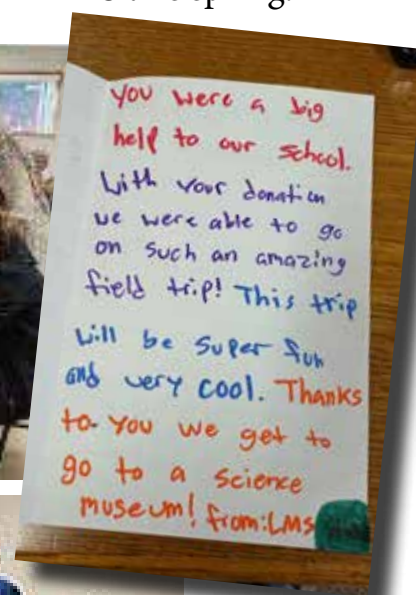 you were a big
help to our school.
With your donation
we were able to go
on such an amazing
field trip! This trip
will be super fun
and very cool. Thanks
to you we get to
go to a science
museum! from: LMS